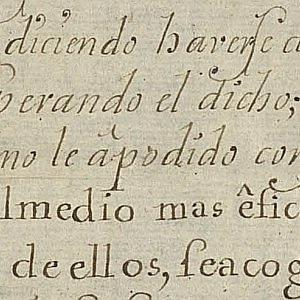 diciendo haverse
perando el dicho;
mo le a podido con
lmedio mas êfic
de ellos, seacog